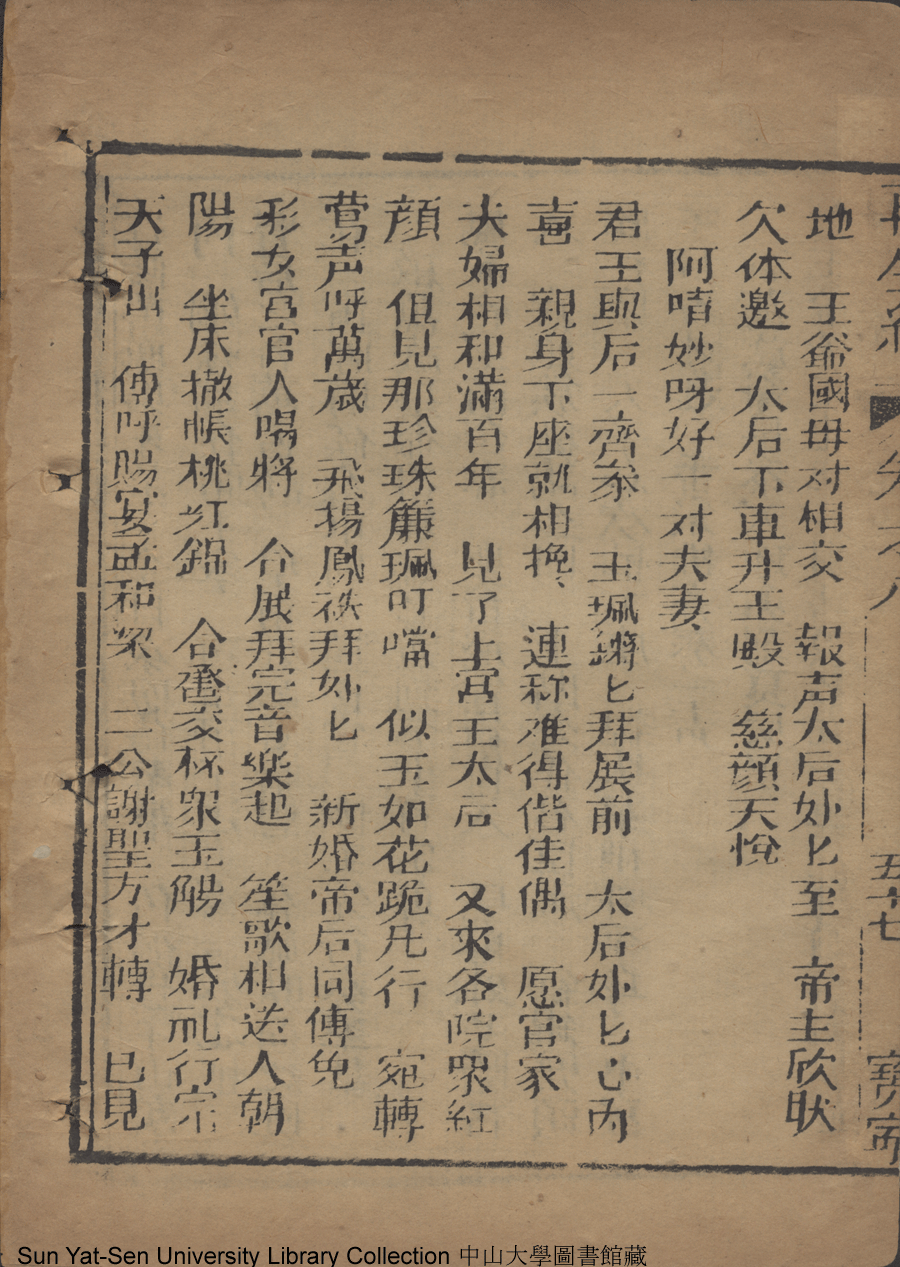 地　王爺國毋对相交　報声太后妙匕至　帝主欣狀
欠体邀　太后下車升玉殿　慈顔天悅
阿嘻妙呀好一对夫妻、
君王與后一齊叅　玉珮鏘匕拜展前　太后妙匕心內
喜　親身下座就相挽、　連称难得偕佳偶　愿官家
夫婦相和滿百年　見了上宮王太后　又來各院眾紅
顔　但見那珍珠簾珮叮噹　似玉如花跪几行　宛轉
鶯声呼萬歲　飛揚鳳袂拜妙匕　新婚帝后同傳免
彩女宮官人唱將　合展拜完音樂起　笙歌相送入朝
陽　坐床撤帳桃紅錦　合巹交杯眾玉觴　婚礼行完
天子出　傳呼賜宴孟和梁　二公謝聖方才轉　已見
五十七
Sun Yat-Sen University Library Collection 中山大學圖書館藏